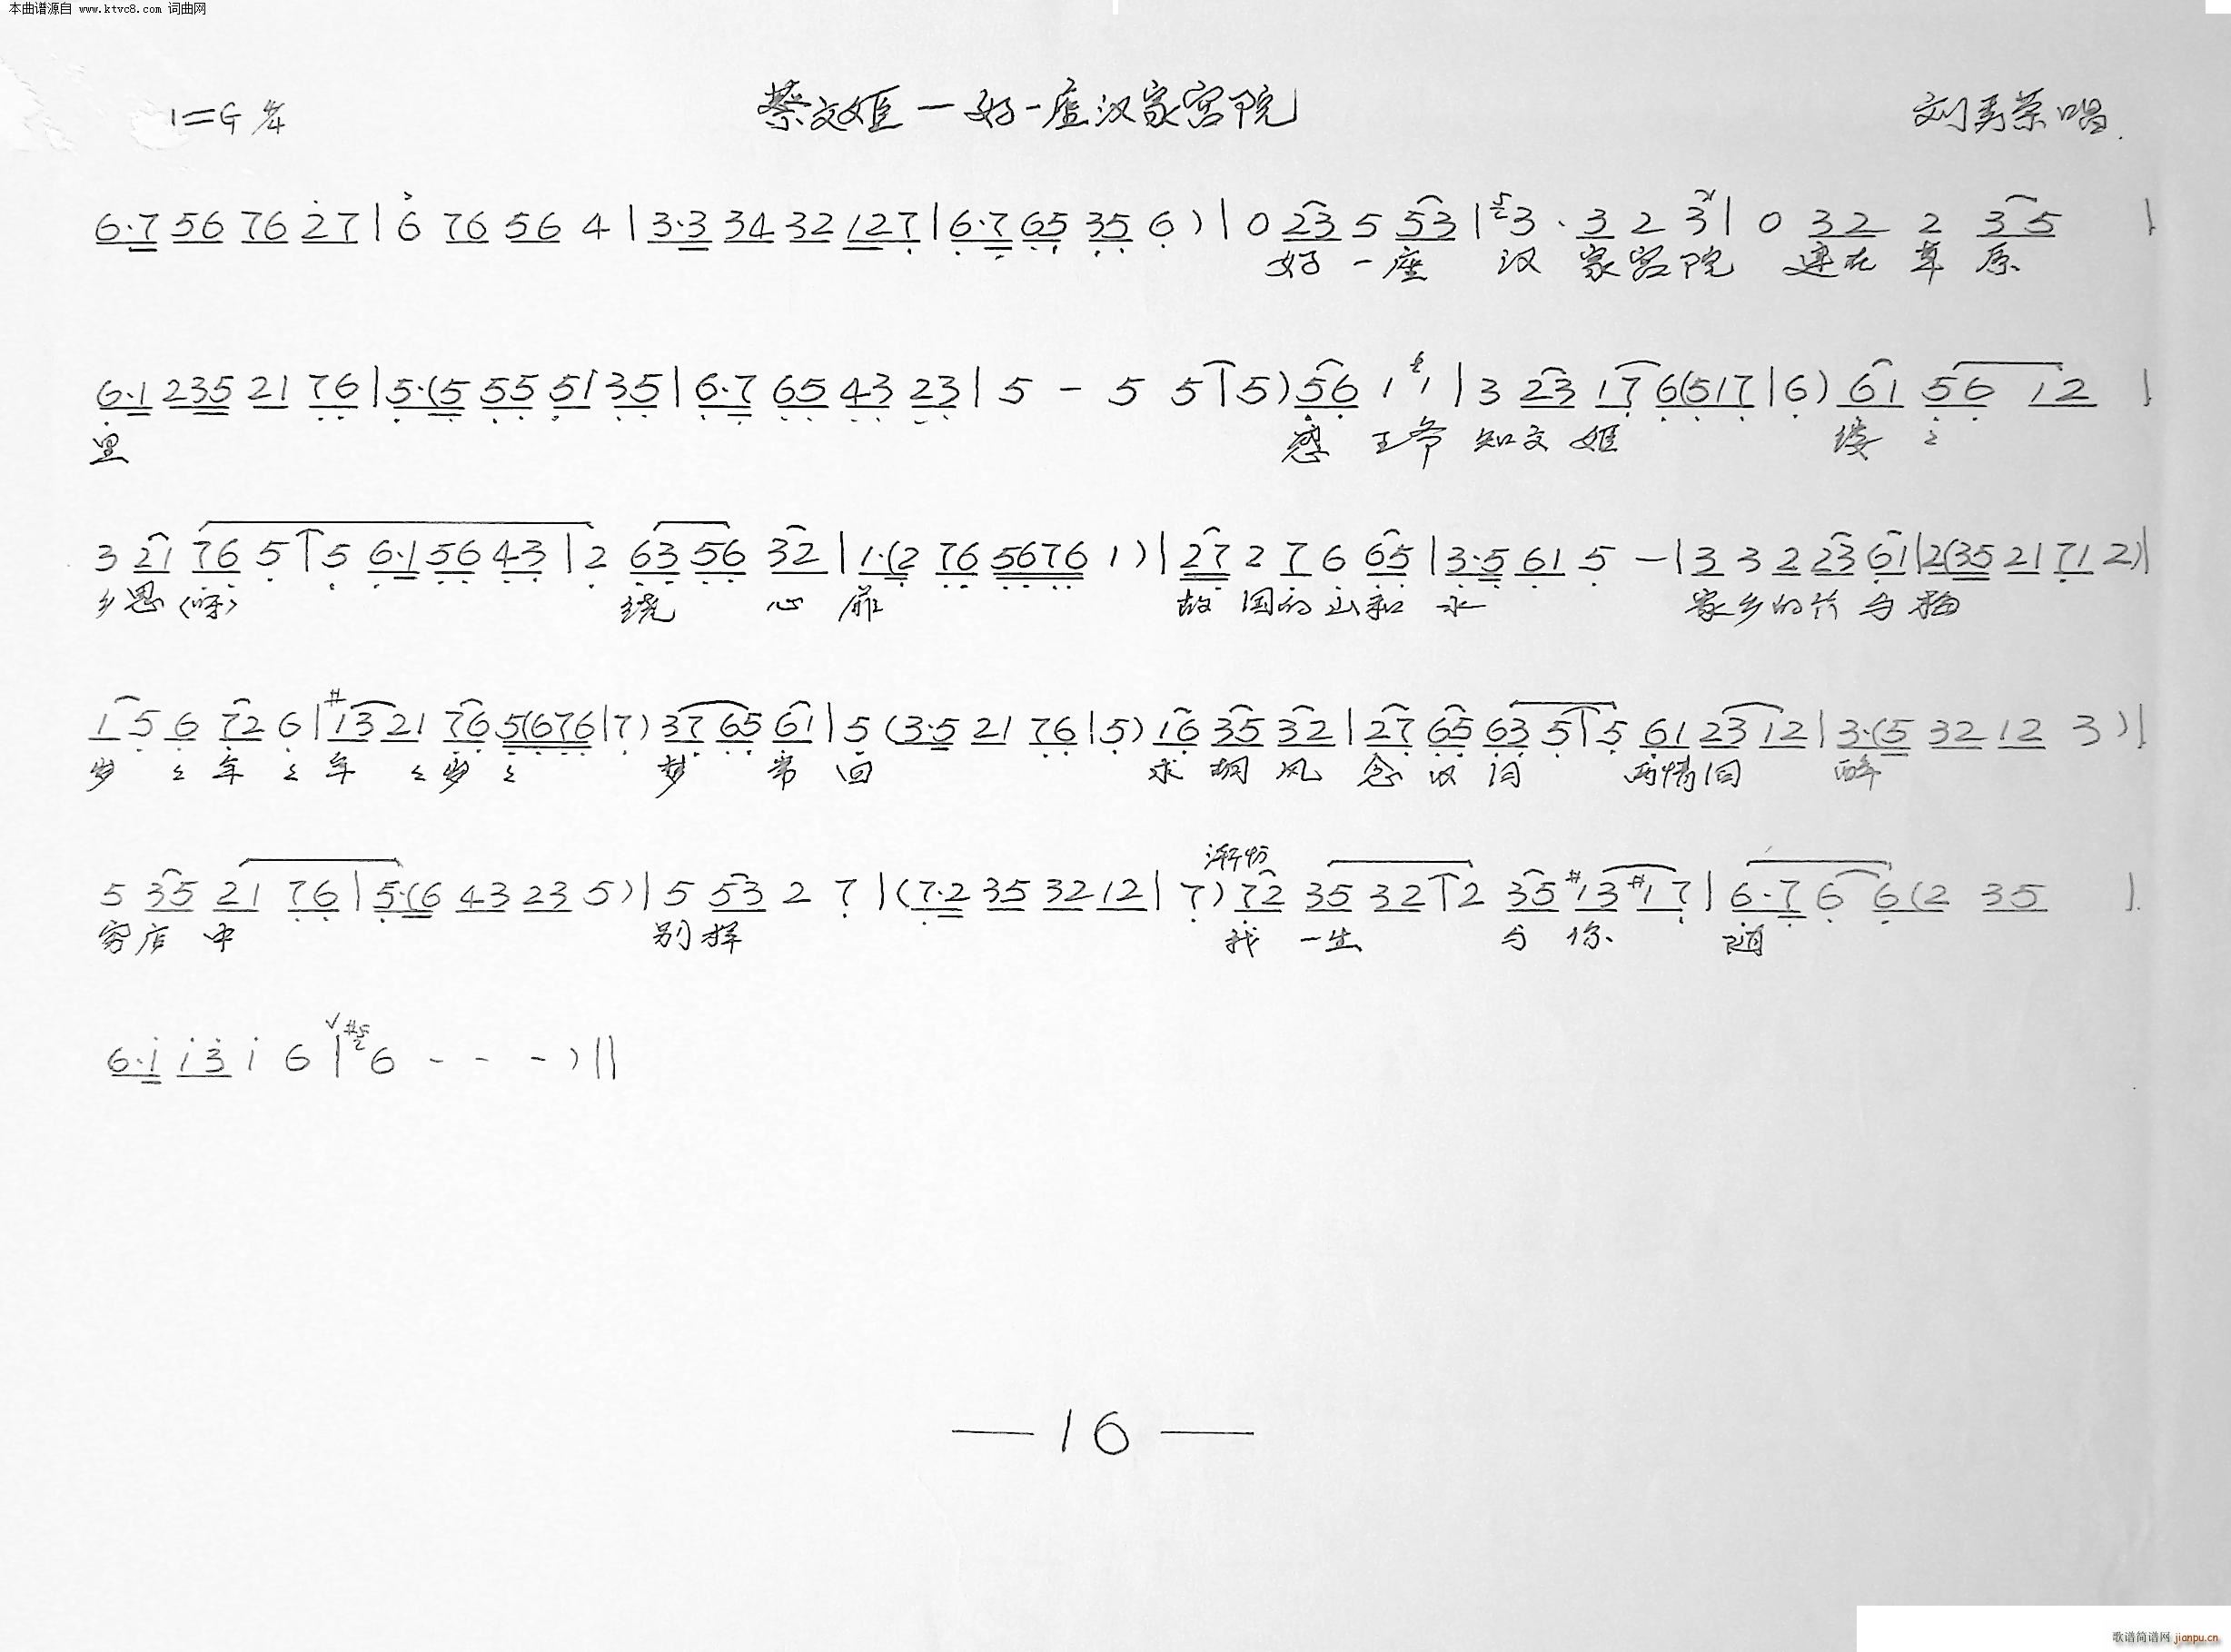 本曲谱源自 www.ktvc8.com 词曲网
1=G 4/4 蔡文姬—好一座汉家宫院 刘秀荣唱
6·7 56 76 27 | 6 76 56 4 | 3·3 34 32 127 | 6·7 65 35 6 ) | 0 23 5 53 | 3 · 3 2 3 | 0 32 2 35 |
好一座 汉家宫院 建在草原
6·1 235 21 76 | 5·(5 55 51 35 | 6·7 65 43 23 | 5 - 5 5 | 5) 56 1 1 | 3 23 17 6(517 | 6) 61 56 12 |
里 感王爷知文姬 缕々
3 21 76 5 | 5 6·1 56 43 | 2 63 56 32 | 1·(2 76 5676 1) | 27 2 7 6 65 | 3·5 61 5 - | 3 3 2 23 61 | 2(35 21 71 2) |
乡思(呀) 绕心扉 故国的山和水 家乡的竹与梅
15 6 72 6 | #13 21 76 5(676 | 7) 37 65 61 | 5 (3·5 21 76 | 5) 16 35 32 | 27 65 63 5 | 5 61 23 12 | 3·(5 32 12 3 ) |
岁々年々年々岁々 梦常回 求胡风念汉词 两情同醉
5 35 21 76 | 5·(6 43 23 5) | 5 53 2 7 | (7·2 35 32 12 | 7) 72 35 32 | 2 35 #13 #17 | 6·7 6 6(2 35 |
穹庐中 别挥 我一生与你随
6·1 13 1 6 | 6 - - - ) ||
— 16 —
歌谱简谱网 jianpu.cn